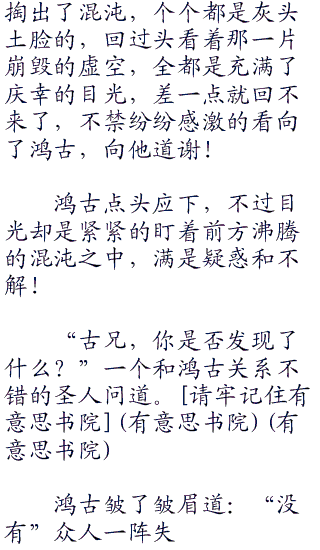 掏出了混沌，个个都是灰头
土脸的，回过头看着那一片
崩毁的虚空，全都是充满了
庆幸的目光，差一点就回不
来了，不禁纷纷感激的看向
了鸿古，向他道谢！
鸿古点头应下，不过目
光却是紧紧的盯着前方沸腾
的混沌之中，满是疑惑和不
解！
“古兄，你是否发现了
什么？”一个和鸿古关系不
错的圣人问道。[请牢记住有
意思书院] (有意思书院) (有
意思书院)
鸿古皱了皱眉道：“没
有”众人一阵失